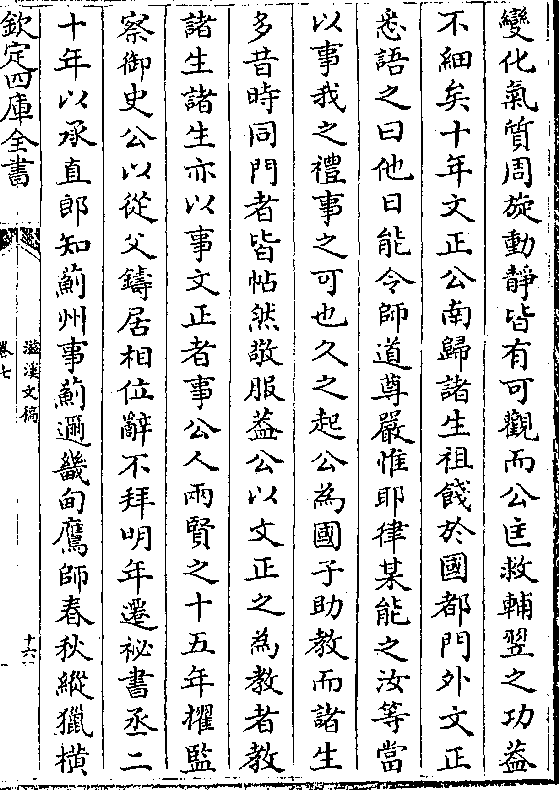 變化氣質周旋動靜皆有可觀而公匡救輔翌之功葢
不細矣十年文正公南歸諸生祖餞於國都門外文正
悉語之曰他日能令師道尊嚴惟耶律某能之汝等當
以事我之禮事之可也久之起公為國子助教而諸生
多昔時同門者皆帖然敬服葢公以文正之為教者教
諸生諸生亦以事文正者事公人兩賢之十五年擢監
察御史公以從父鑄居相位辭不拜明年遷祕書丞二
十年以承直郎知薊州事薊邇畿甸鷹師春秋縱獵橫
欽定四庫全書
滋溪文稿
卷七
十六